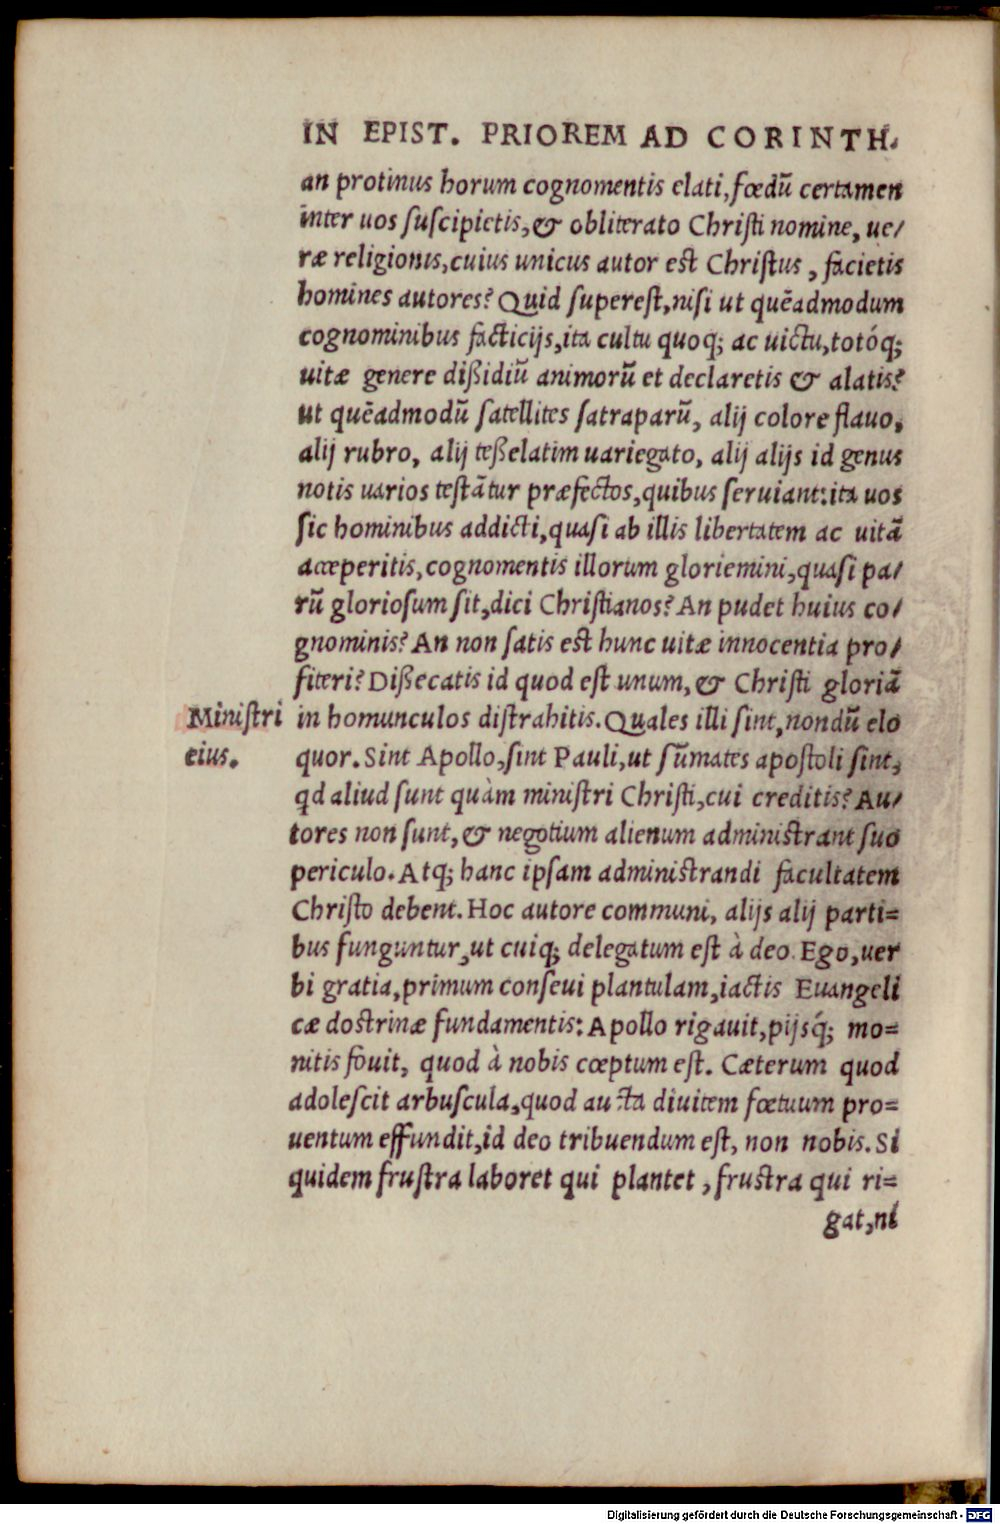 IN EPIST. PRIOREM AD CORINTH.
an protinus horum cognomentis elati, fœdũ certamen
inter uos suscipietis, & obliterato Christi nomine, ue/
ræ religionis, cuius unicus autor est Christus, facietis
homines autores? Quid superest, nisi ut quẽadmodum
cognominibus facticijs, ita cultu quoq; ac uictu, totóq;
uitæ genere dißidiũ animorũ et declaretis & alatis?
ut quẽadmodũ satellites satraparũ, alij colore flauo,
alij rubro, alij teßelatim uariegato, alij alijs id genus
notis uarios testãtur præfectos, quibus seruiant: ita uos
sic hominibus addicti, quasi ab illis libertatem ac uitã
acceperitis, cognomentis illorum gloriemini, quasi pa/
rũ gloriosum sit, dici Christianos? An pudet huius co/
gnominis? An non satis est hunc uitæ innocentia pro/
fiteri? Dißecatis id quod est unum, & Christi gloriã
Ministri eius.
in homunculos distrahitis. Quales illi sint, nondũ elo
quor. Sint Apollo, sint Pauli, ut sũmates apostoli sint,
qd aliud sunt quàm ministri Christi, cui creditis? Au/
tores non sunt, & negotium alienum administrant suo
periculo. Atq; hanc ipsam administrandi facultatem
Christo debent. Hoc autore communi, alijs alij parti=
bus funguntur, ut cuiq; delegatum est à deo. Ego, uer
bi gratia, primum conseui plantulam, iactis Euangeli
cæ doctrinæ fundamentis: Apollo rigauit, pijsq́; mo=
nitis fouit, quod à nobis cœptum est. Cæterum quod
adolescit arbuscula, quod aucta diuitem fœtuum pro=
uentum effundit, id deo tribuendum est, non nobis. Si
quidem frustra laboret qui plantet, frustra qui ri=
gat, ni
Digitalisierung gefördert durch die Deutsche Forschungsgemeinschaft - DFG